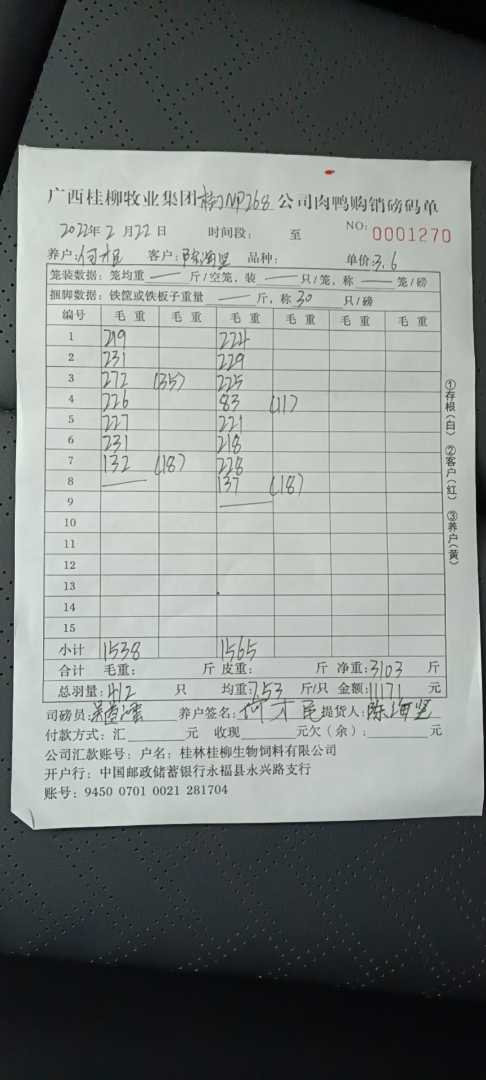 广西桂柳牧业集团 公司肉鸭购销磅码单
2022年 2 月 22 日 时间段: 至 NO: 0001270
养户: 客户: 陈海坚 品种: 单价: 3.6
笼装数据: 笼均重 — 斤/空笼, 装 — 只/笼, 称 — 笼/磅
捆脚数据: 铁筐或铁板子重量 — 斤, 称 30 只/磅
编号 毛重 毛重 毛重 毛重 毛重 毛重
1 219 224
2 231 229
3 272 (35) 225
4 226 83 (11)
5 227 221
6 231 218
7 132 (18) 228
8 — 137 (18)
9 —
10
11
12
13
14
15
小计 1538 1565
合计 毛重: 斤 皮重: 斤 净重: 3103 斤
总羽量: 412 只 均重: 7.53 斤/只 金额: 11171 元
司磅员: 养户签名: 何才民 提货人: 陈海坚
付款方式: 汇 元 收现 元欠(余): 元
公司汇款账号: 户名: 桂林桂柳生物饲料有限公司
开户行: 中国邮政储蓄银行永福县永兴路支行
账号: 9450 0701 0021 281704
①存根(白) ②客户(红) ③养户(黄)